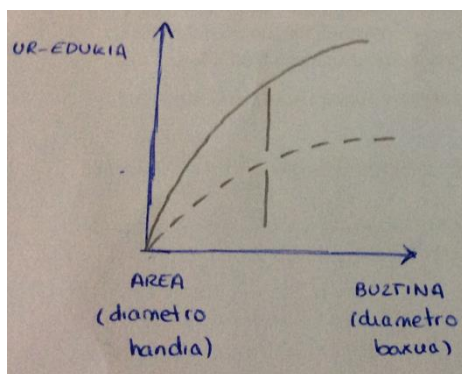 UR-EDUKIA
AREA
(diametro
handia)
BUZTINA
(diametro
baxua)